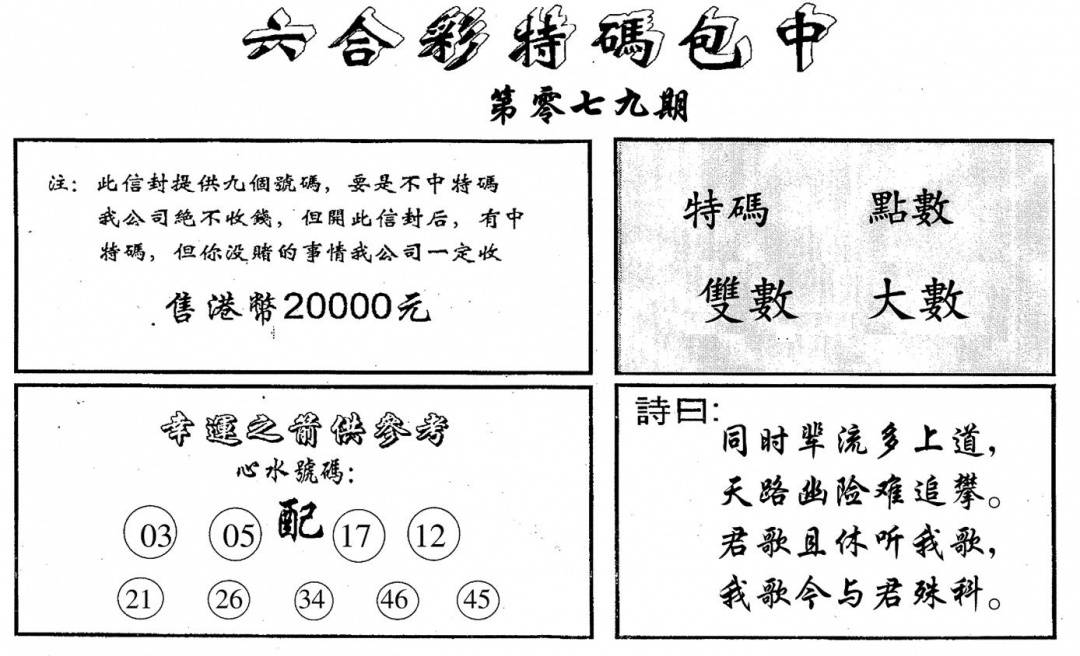 六合彩特碼包中
第零七九期
注：此信封提供九個號碼，要是不中特碼
我公司絕不收錢，但開此信封后，有中
特碼，但你没賭的事情我公司一定收
售港幣20000元
特碼 點數
雙數 大數
幸運之箭供參考
心水號碼：
03 05 配 17 12
21 26 34 46 45
詩曰：
同时辈流多上道，
天路幽险难追攀。
君歌且休听我歌，
我歌今与君殊科。